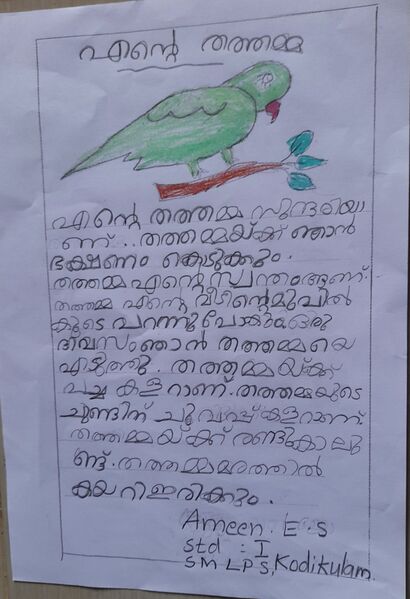 എന്റെ തത്തമ്മ
എന്റെ തത്തമ്മ സുന്ദരിയാ
ണ്. തത്തമ്മയ്ക്ക് ഞാൻ
ഭക്ഷണം കൊടുക്കും.
തത്തമ്മ എന്റെ സ്വന്തം ആണ്.
തത്തമ്മ എന്റെ വീടിന്റെ മുമ്പിൽ
കൂടെ പറന്നു പോകും. ഒരു
ദിവസം ഞാൻ തത്തമ്മയെ
എടുത്തു. തത്തമ്മയ്ക്ക്
പച്ച കളറാണ്. തത്തമ്മയുടെ
ചുണ്ടിന് ചുവപ്പ് കളറാണ്.
തത്തമ്മയ്ക്ക് രണ്ടു കാലു
ണ്ട്. തത്തമ്മ മരത്തിൽ
കയറി ഇരിക്കും.
Ameen. E.S
std : I
SMLPS, Kodikulam.